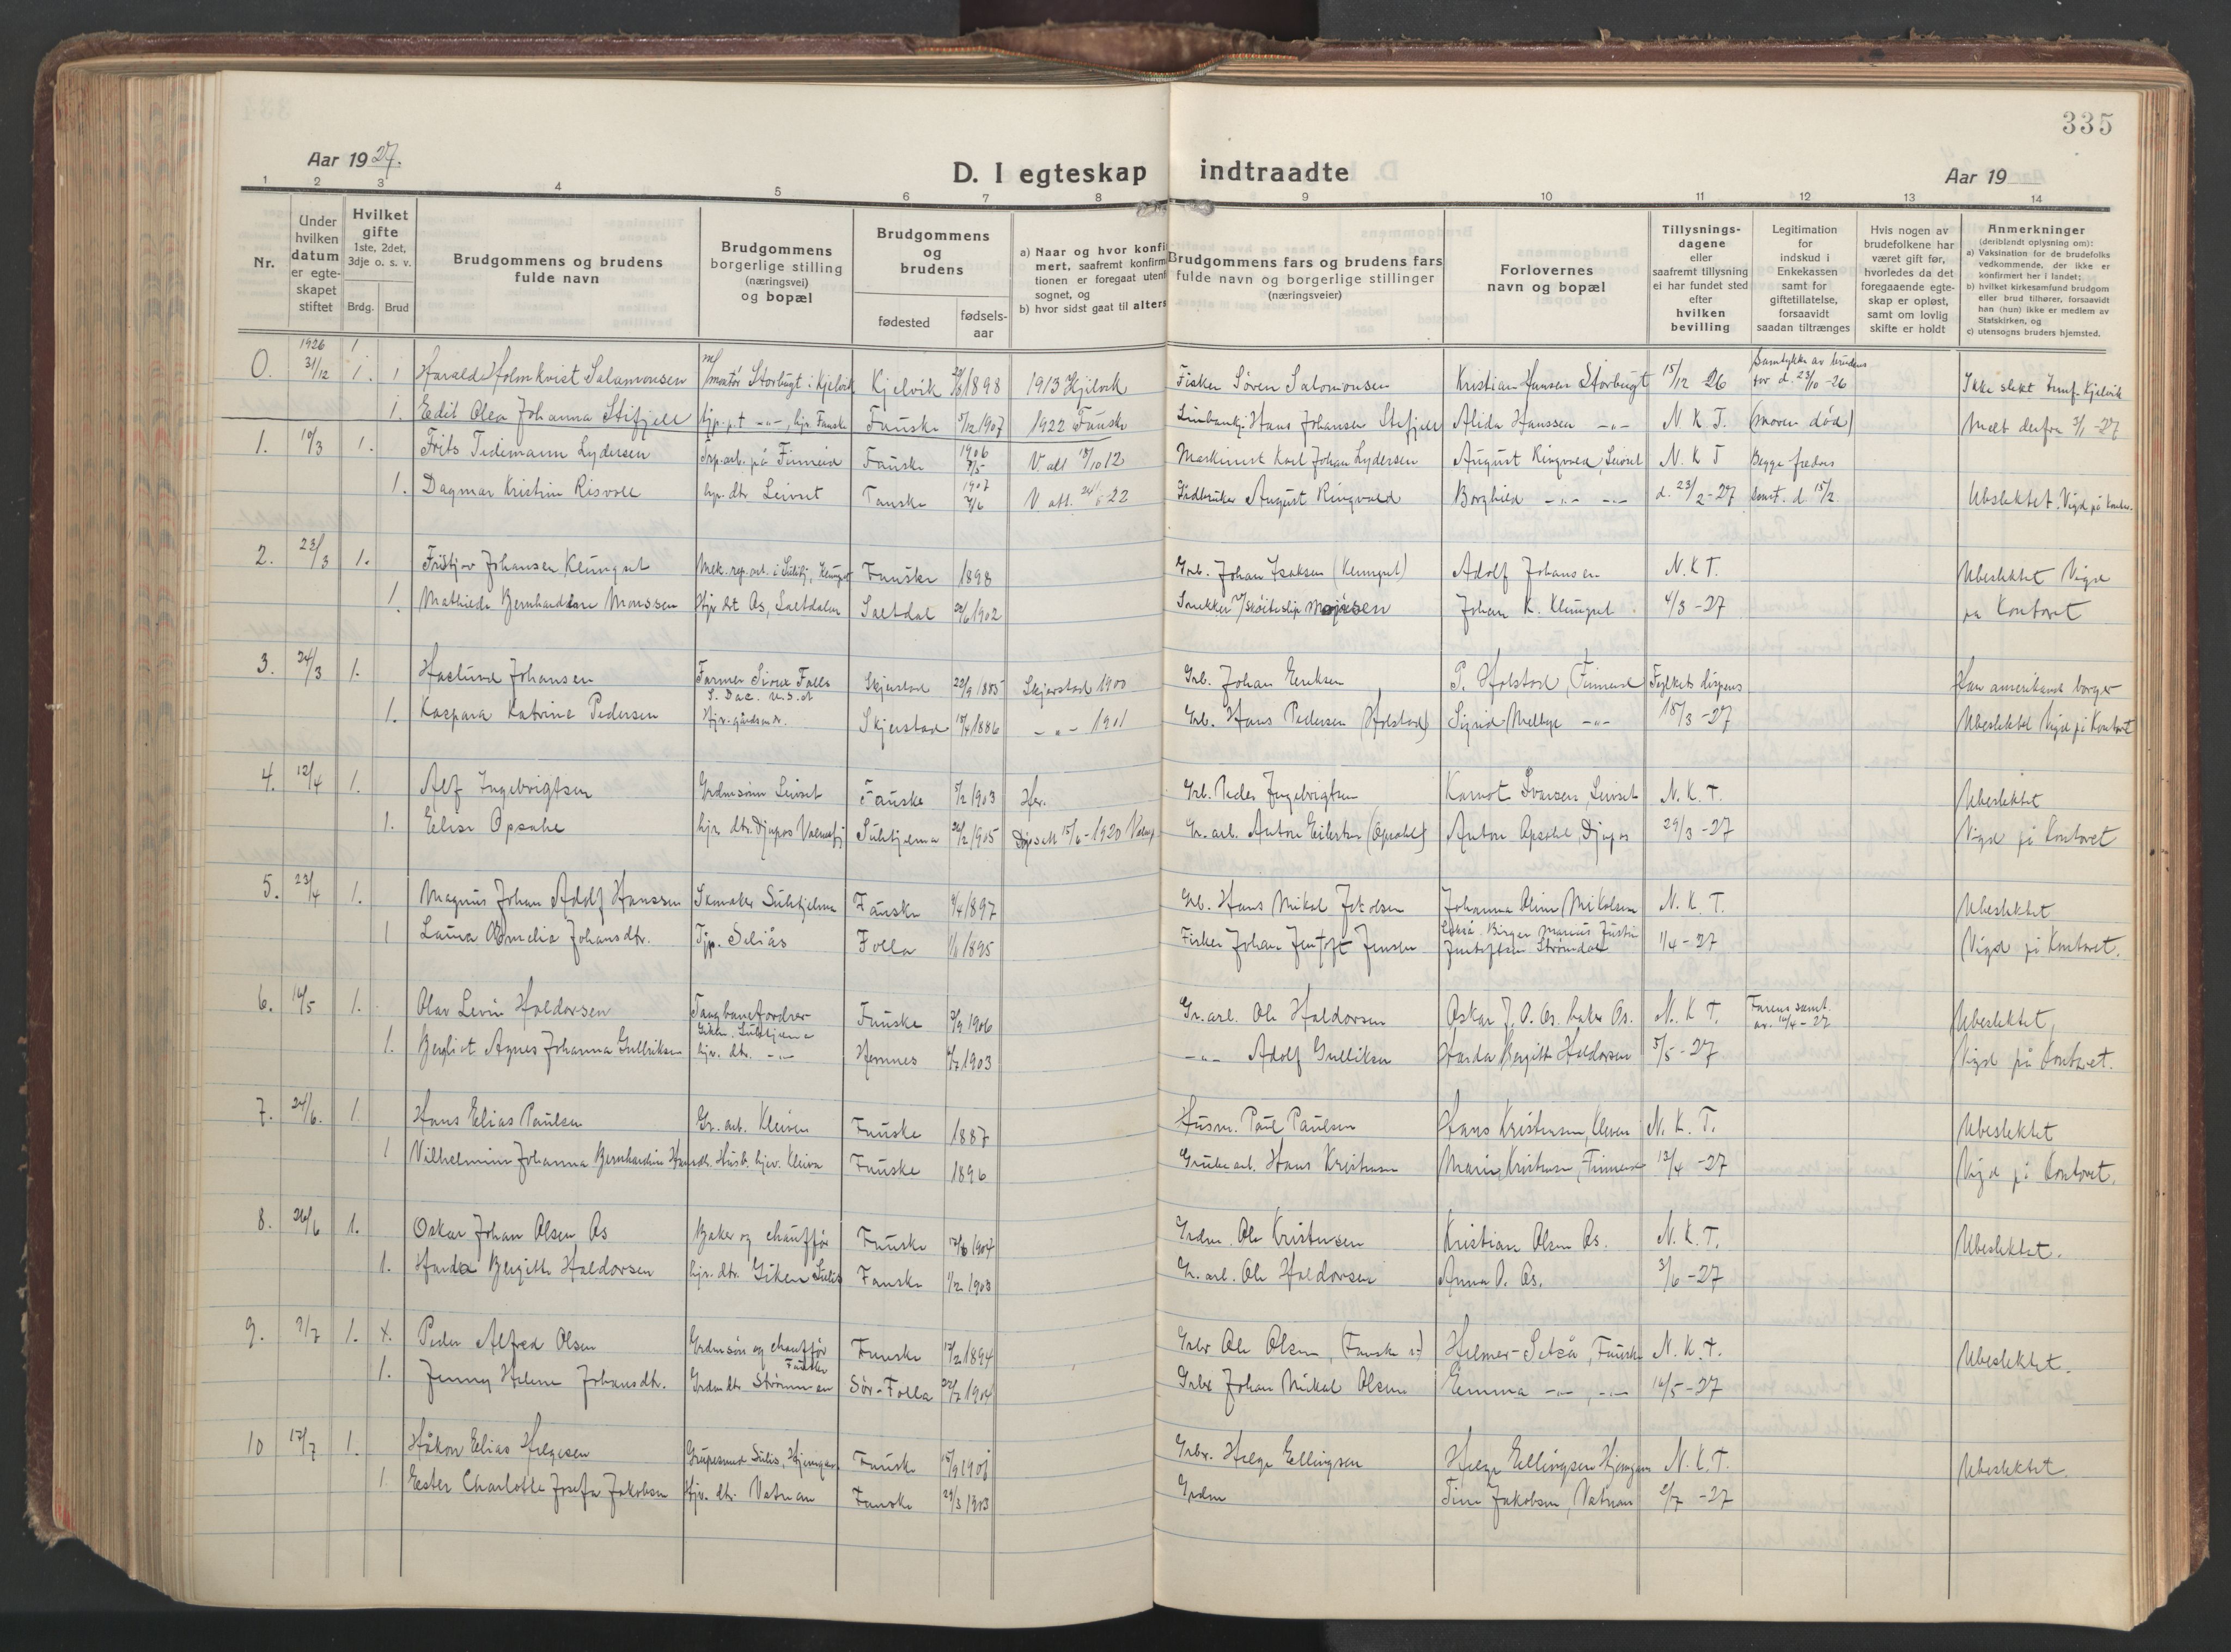 335
Aar 1927.
D. I egteskap indtraadte
Aar 19
1 2 3 4 5 6 7 8 9 10 11 12 13 14
Nr.
Under hvilken datum er egte-skapet stiftet
Hvilket gifte 1ste, 2det, 3dje o. s. v.
Brdg. Brud
Brudgommens og brudens fulde navn
Brudgommens borgerlige stilling (næringsvei) og bopæl
Brudgommens og brudens
fødested
fødsels-aar
a) Naar og hvor konfi mert, saafremt konfirm tionen er foregaat utenf sognet, og
b) hvor sidst gaat til alters
Brudgommens fars og brudens fars fulde navn og borgerlige stillinger (næringsveier)
Forlovernes navn og bopæl
Tillysnings-dagene eller saafremt tillysning ei har fundet sted efter hvilken bevilling
Legitimation for indskud i Enkekassen samt for giftetillatelse, forsaavidt saadan tiltrænges
Hvis nogen av brudefolkene har været gift før, hvorledes da det foregaaende egte-skap er opløst, samt om lovlig skifte er holdt
Anmerkninger (deriblandt oplysning om):
a) Vaksination for de brudefolks vedkommende, der ikke er konfirmert her i landet;
b) hvilket kirkesamfund brudgom eller brud tilhører, forsaavidt han (hun) ikke er medlem av Statskirken, og
c) utensogns bruders hjemsted.
0. 1926 31/12 1. 1 Harald Holmkvist Salamonsen montør Storbugt i Kjelvik Kjelvik 1898 1913 Kjelvik Fisker Søren Salomonsen Kristian Hansen Storbugt 15/12 26 Samtykke av brudens far d. 23/10-26 Ikke slekt Kjelvik
1. Edit Olea Johanna Stifjell hjp. p.t. -"-, hjv. Fauske Fauske 5/12 1907 1922 Fauske Hans Johansen Stifjell Alida Hanssen -"- N. K. T. (moren død) Meldt derfra 3/1-27
1. 10/3 1. Frits Tidemann Lydersen på Finneid Fauske 1906 7/5 V att 12 Maskinist Karl Johan Lydersen August Ringvold Leivset N. K T Begge fedres
1. Dagmar Kristine Risvoll hjv. dtr Leivset Fauske 1907 7/6 V. att. 22 Gårdbruker August Ringvold Borghild -"- -"- d. 23/2-27 samt. d 15/2 Ubeslektet. Vigd på kontor.
2. 23/3 1. Fritjov Johansen Klungset Mek. rep. arb. i Sulitj, Klungset Fauske 1898 Grb. Johan Isaksen (Klungset) Adolf Johansen N. K T. Ubeslektet Vigd
1. Mathilde Bernharddine Monssen Hjv dt Os, Saltdalen Saltdal 22/6 1902 Snekker Mojesen Johan K. Klungset 4/3-27 på Kontoret
3. 24/3 1. Haslund Johansen Farmer Sioux Falls S. Dac. U.S.A Skjerstad 22/9 1885 Skjerstad 1900 Grb. Johan Eriksen P. Holstad, Finneid Fylkets dispens Han amerikansk borger
1. Kaspara Katrine Pedersen Hjv. gårdm dr. Skjerstad 18/4 1886 -"- 1901 Grb. Hans Pedersen (Holstad) Sigrid Melbye -"- 18/3-27 Ubeslektet Vigd på Kontoret
4. 12/4 1. Alf Ingebrigtsen Grdmsønn Leivset Fauske 5/2 1903 Her. Grb. Peder Ingebrigtsen Karnot Ivarsen, Leivset N. K. T. Ubeslektet
1. Elise Opsahl hjv. dtr. Djupos Valnesfj Sulitjelma 26/2 1905 15/6-1920 Gr. arb. Anton Eilertsen (Opsahl) Anton Opsahl, Djupos 29/3-27 Vigd på Kontoret
5. 23/4 1. Magnus Johan Adolf Hanssen Skomaker Sulitjelma Fauske 9/4 1897 Grb. Hans Mikal Johanna Oline Mikalsen N. K. T. Ubeslektet
1 Laura Amelie Johansdtr. Tjp. Seliås Folla 1/11 1895 Fisker Johan Jentoft Jensen Birger Marius Justin Jentoftsen Strømdal 1/4-27 Vigd på Kontoret.
6. 16/5 1. Olav Levin Haldorsen Taugbanefordrer Giken, Sulitjelma Fauske 3/9 1906 Gr. arb. Ole Haldorsen Oskar J. O. Os. baker Os. N. K T. Farens samt. av. 16/4-27 Ubeslektet,
1. Bergliot Agnes Johanna Gulliksen hjv. dtr. -"- Hemnes 4/7 1903 -"- Adolf Gulliksen Harda Bergitte Haldorsen 3/5-27 Vigd på Kontoret.
7. 24/6. 1. Hans Elias Paulsen Gr. arb. Kleiven Fauske 1887 Husm. Paul Paulsen Hans Kristensen, Kleven N. K. T. Ubeslektet
1 Vilhelmine Johanna Bernhardine Hansdr. Husb. hjv. Kleiva Fauske 1896 Grubearb. Hans Kristensen Marie Kristensen, Finneid 12/4-27 Vigd på Kontoret.
8. 26/6 1. Oskar Johan Olsen Os Baker og chauffør Fauske 12/6 1904 Grdm. Ole Kristensen Kristian Olsen Os. N. K. T. Ubeslektet.
1. Harda Bergitte Haldorsen hjv. dtr. Giken Sulis Fauske 1/2 1903 Gr. arb. Ole Haldorsen Anna O. Os. 3/6-27
9. 7/7 1. X. Peder Alfred Olsen Grdmsøn og chauffør Fauske Fauske 12/2 1894 Grbr Ole Olsen, (Fauske) Helmer Setså, Fauske N. K. T. Ubeslektet.
1. Jenny Helene Johansdtr. Grdm dtr Strømmen Sør-Folla 22/7 1904 Grbr Johan Mikal Olsen Emma -"-, -"- 16/5-27
10 17/7 1. Håkon Elias Helgesen Sulis, Hjemgam. Fauske 15/9 1901 Grbr. Helge Ellingsen Helge Ellingsen Hjemgam N. K. T. Ubeslektet.
1. Ester Charlotte Josefa Jakobsen Hjv. dtr. Vatnan Fauske 29/3 1903 Grdm Tine Jakobsen, Vatnan 2/7-27